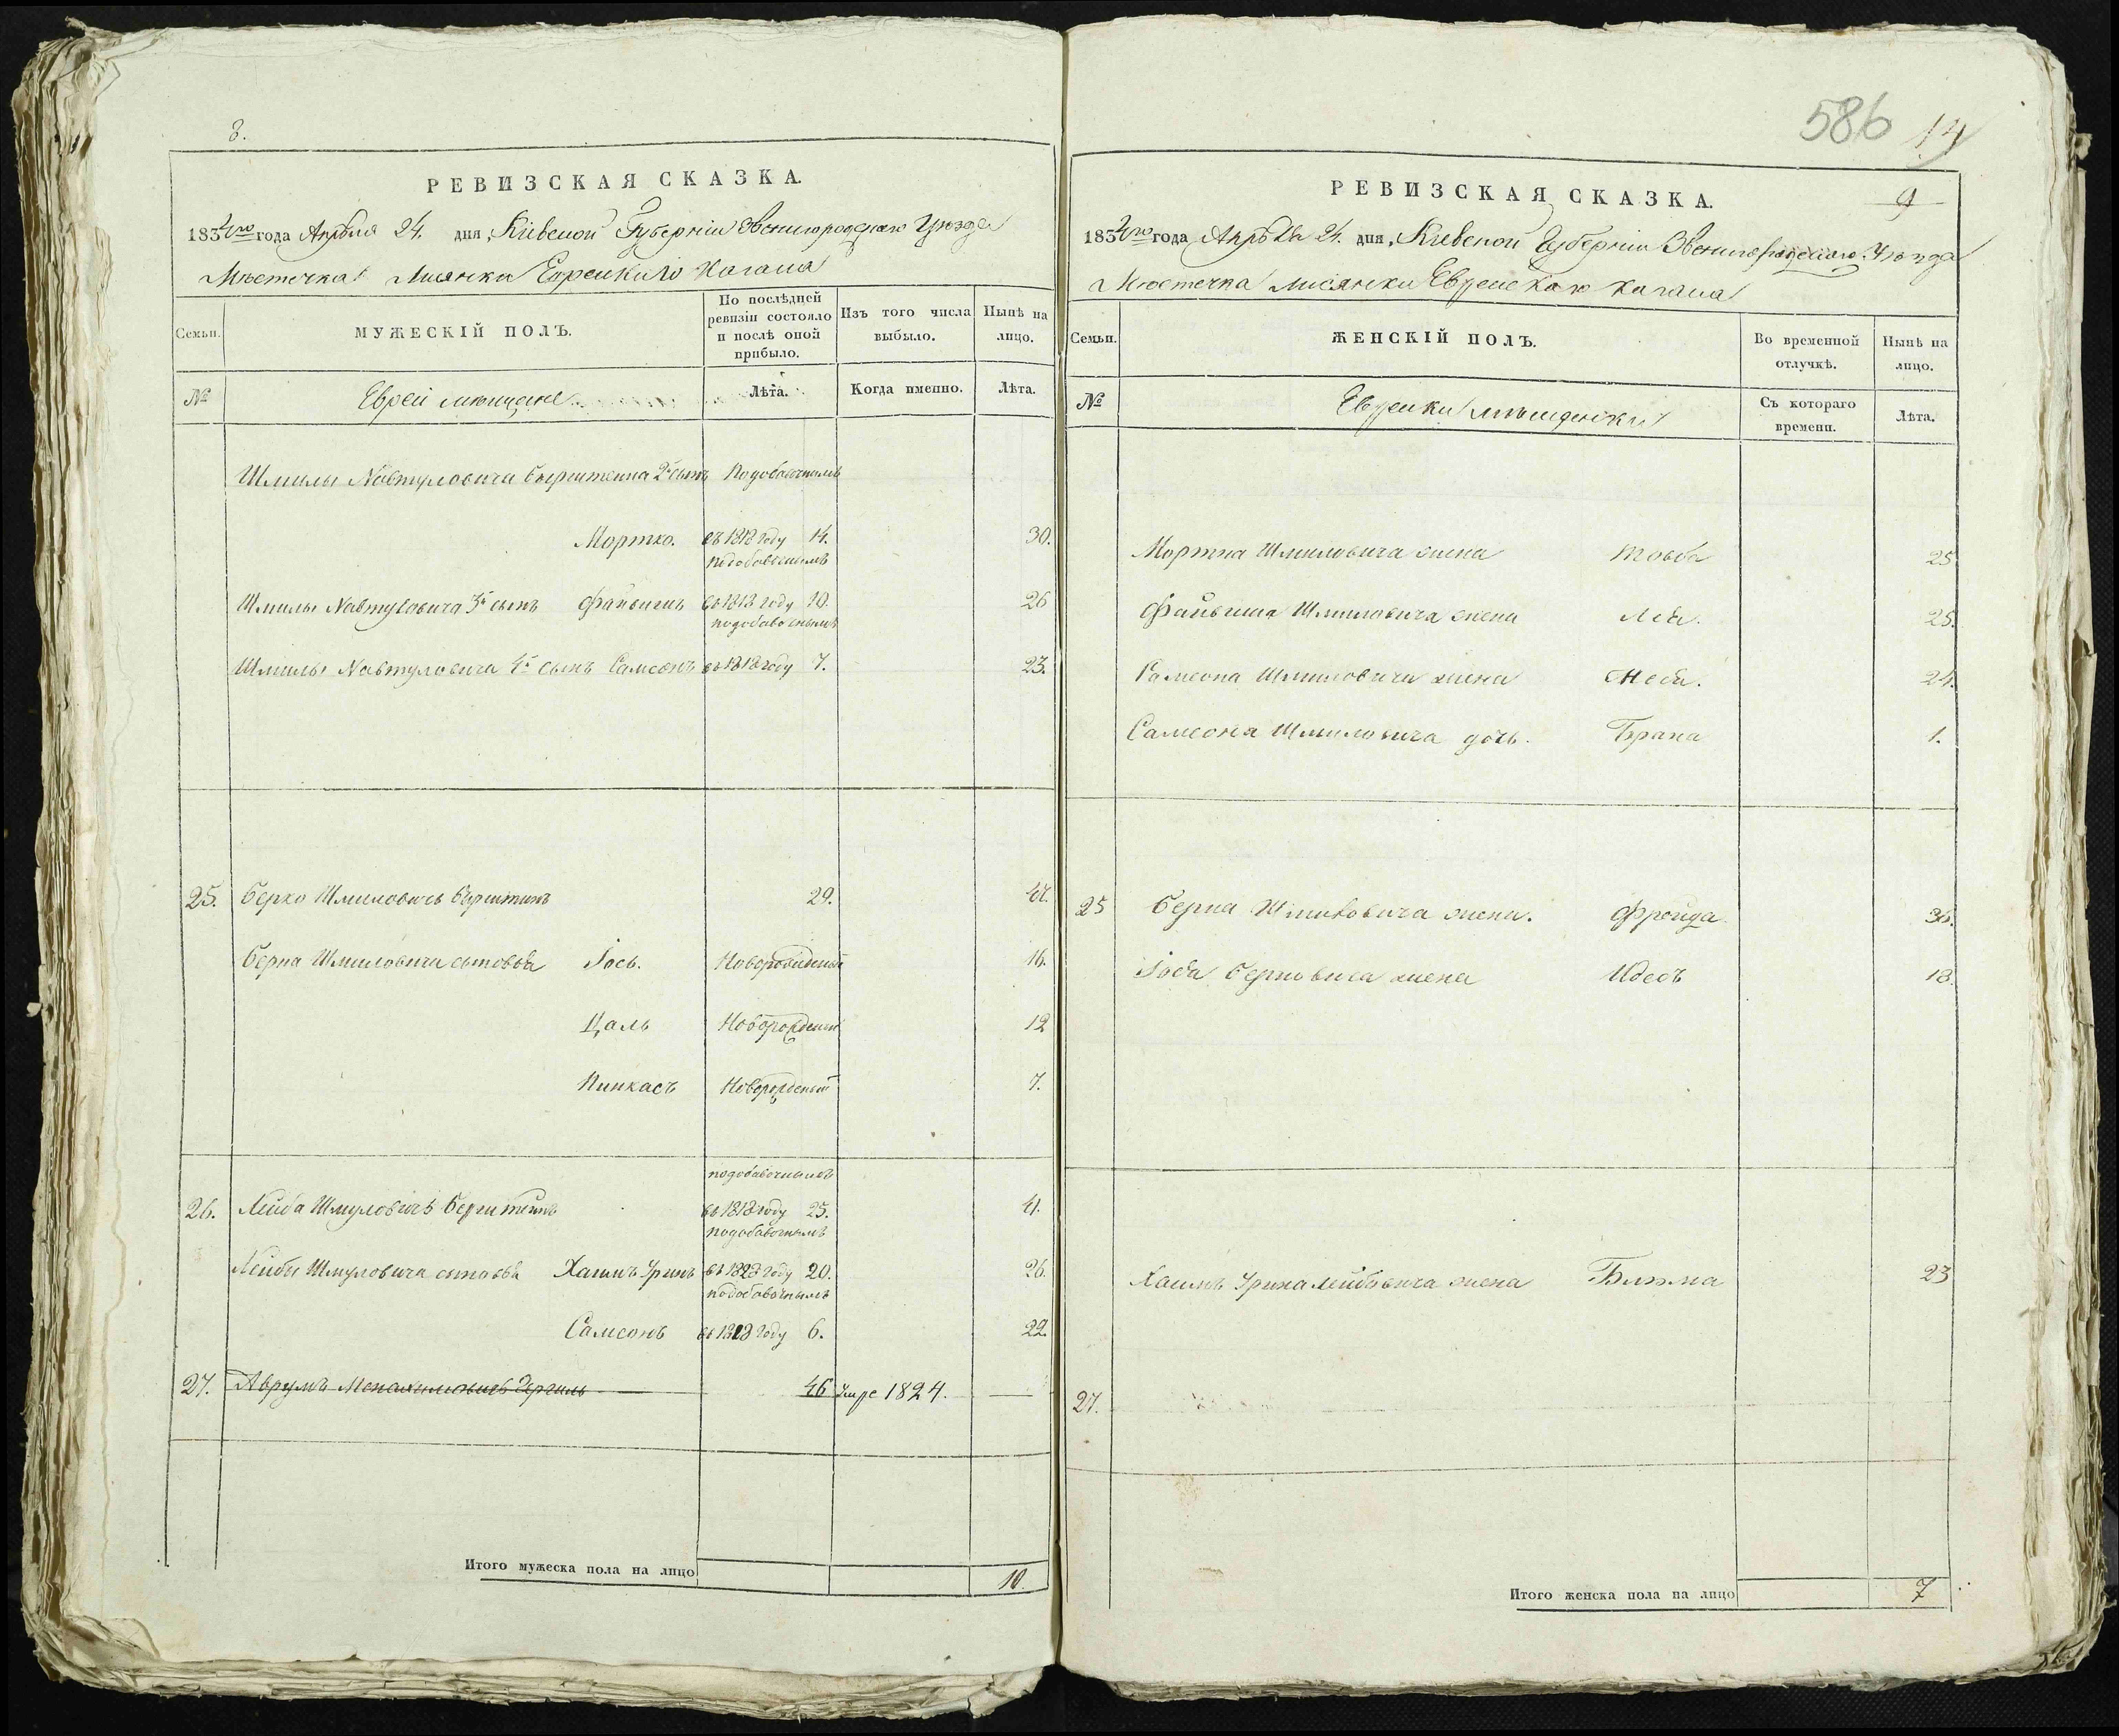 8.
РЕВИЗСКАЯ СКАЗКА.
1834го года Апреля 24. дня, Кіевской Губерніи Звенигородскаго Уезда
Местечка Лисянки Еврейскаго Кагала
Семьи.
МУЖЕСКІЙ ПОЛЪ.
По послѣдней ревизіи состояло и послѣ оной прибыло.
Изъ того числа выбыло.
Нынѣ на лицо.
№
Евреи мещане
Лѣта.
Когда именно.
Лѣта.
Шмилы Навтуловича 2й сынъ Подобавочнымъ
Мортко. въ 1818 году 14. 30.
подобавочнымъ
Шмилы Навтуловича 3й сынъ Файвишъ въ 1818 году 10. 26
подобавочнымъ
Шмилы Навтуловича 4й сынъ Самсонъ въ 1818 году 7. 23.
25. Берко Шмиловичъ 29.
Берка Шмиловича сыновья Іось. Новорожденый 16.
Цаль Новорожденый 12
Пинкасъ Новорожденый 7.
подобавочнымъ
26. Лейба Шмуловичъ Берштейнъ въ 1818 году 25. 41.
подобавочнымъ
Лейбы Шмуловича сыновья Хаимъ Сринъ въ 1828 году 20. 26.
подобавочнымъ
Самсонъ въ 1818 году 6. 22.
27. Аврумъ 46 умре 1824.
Итого мужеска пола на лицо 10.
586 14
9
РЕВИЗСКАЯ СКАЗКА.
1834го года Апреля 24. дня, Кіевской Губерніи Звенигородскаго Уезда
Местечка Лисянки Еврейскаго Кагала
Семьи.
ЖЕНСКІЙ ПОЛЪ.
Во временной отлучкѣ.
Нынѣ на лицо.
№
Еврейки мещанки
Съ котораго времени.
Лѣта.
Мортка Шмиловича жена Товба 25
Файвиша Шмиловича жена Лея. 25.
Самсона Шмиловича жена 24.
Самсона Шмиловича дочь. Брана 1.
25 Берка Шмиловича жена. Фройда 36.
Іося Берковича жена Идесъ 18.
Хаимъ Срина Лейбовича жена Блюма 23
27.
Итого женска пола на лицо 7